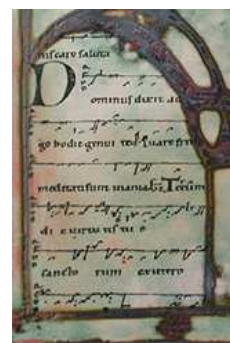 Dominus dixit ad
go hodie genui te Quare fre
meditati sunt inania Tecum
di e virtutis tu e
sancto rum ex utero